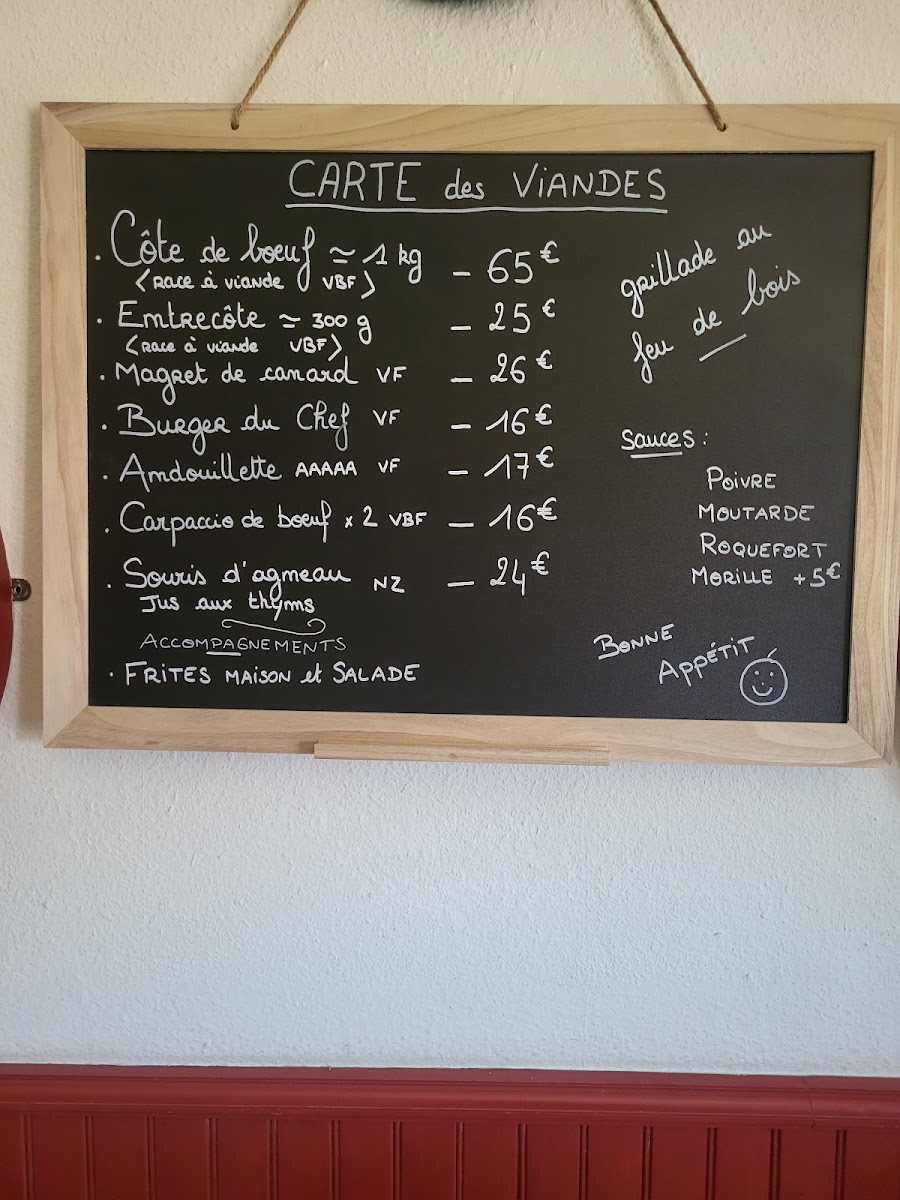 CARTE des VIANDES
. Côte de bœuf ≃ 1 kg - 65€
<race à viande VBF>
. Entrecôte ≃ 300 g - 25€
<race à viande VBF>
. Magret de canard VF - 26€
. Burger du Chef VF - 16€
. Andouillette AAAAA VF - 17€
. Carpaccio de bœuf x 2 VBF - 16€
. Souris d'agneau NZ - 24€
Jus aux thyms
ACCOMPAGNEMENTS
. FRITES MAISON et SALADE
grillade au
feu de bois
Sauces :
POIVRE
MOUTARDE
ROQUEFORT
MORILLE +5€
BONNE
APPÉTIT